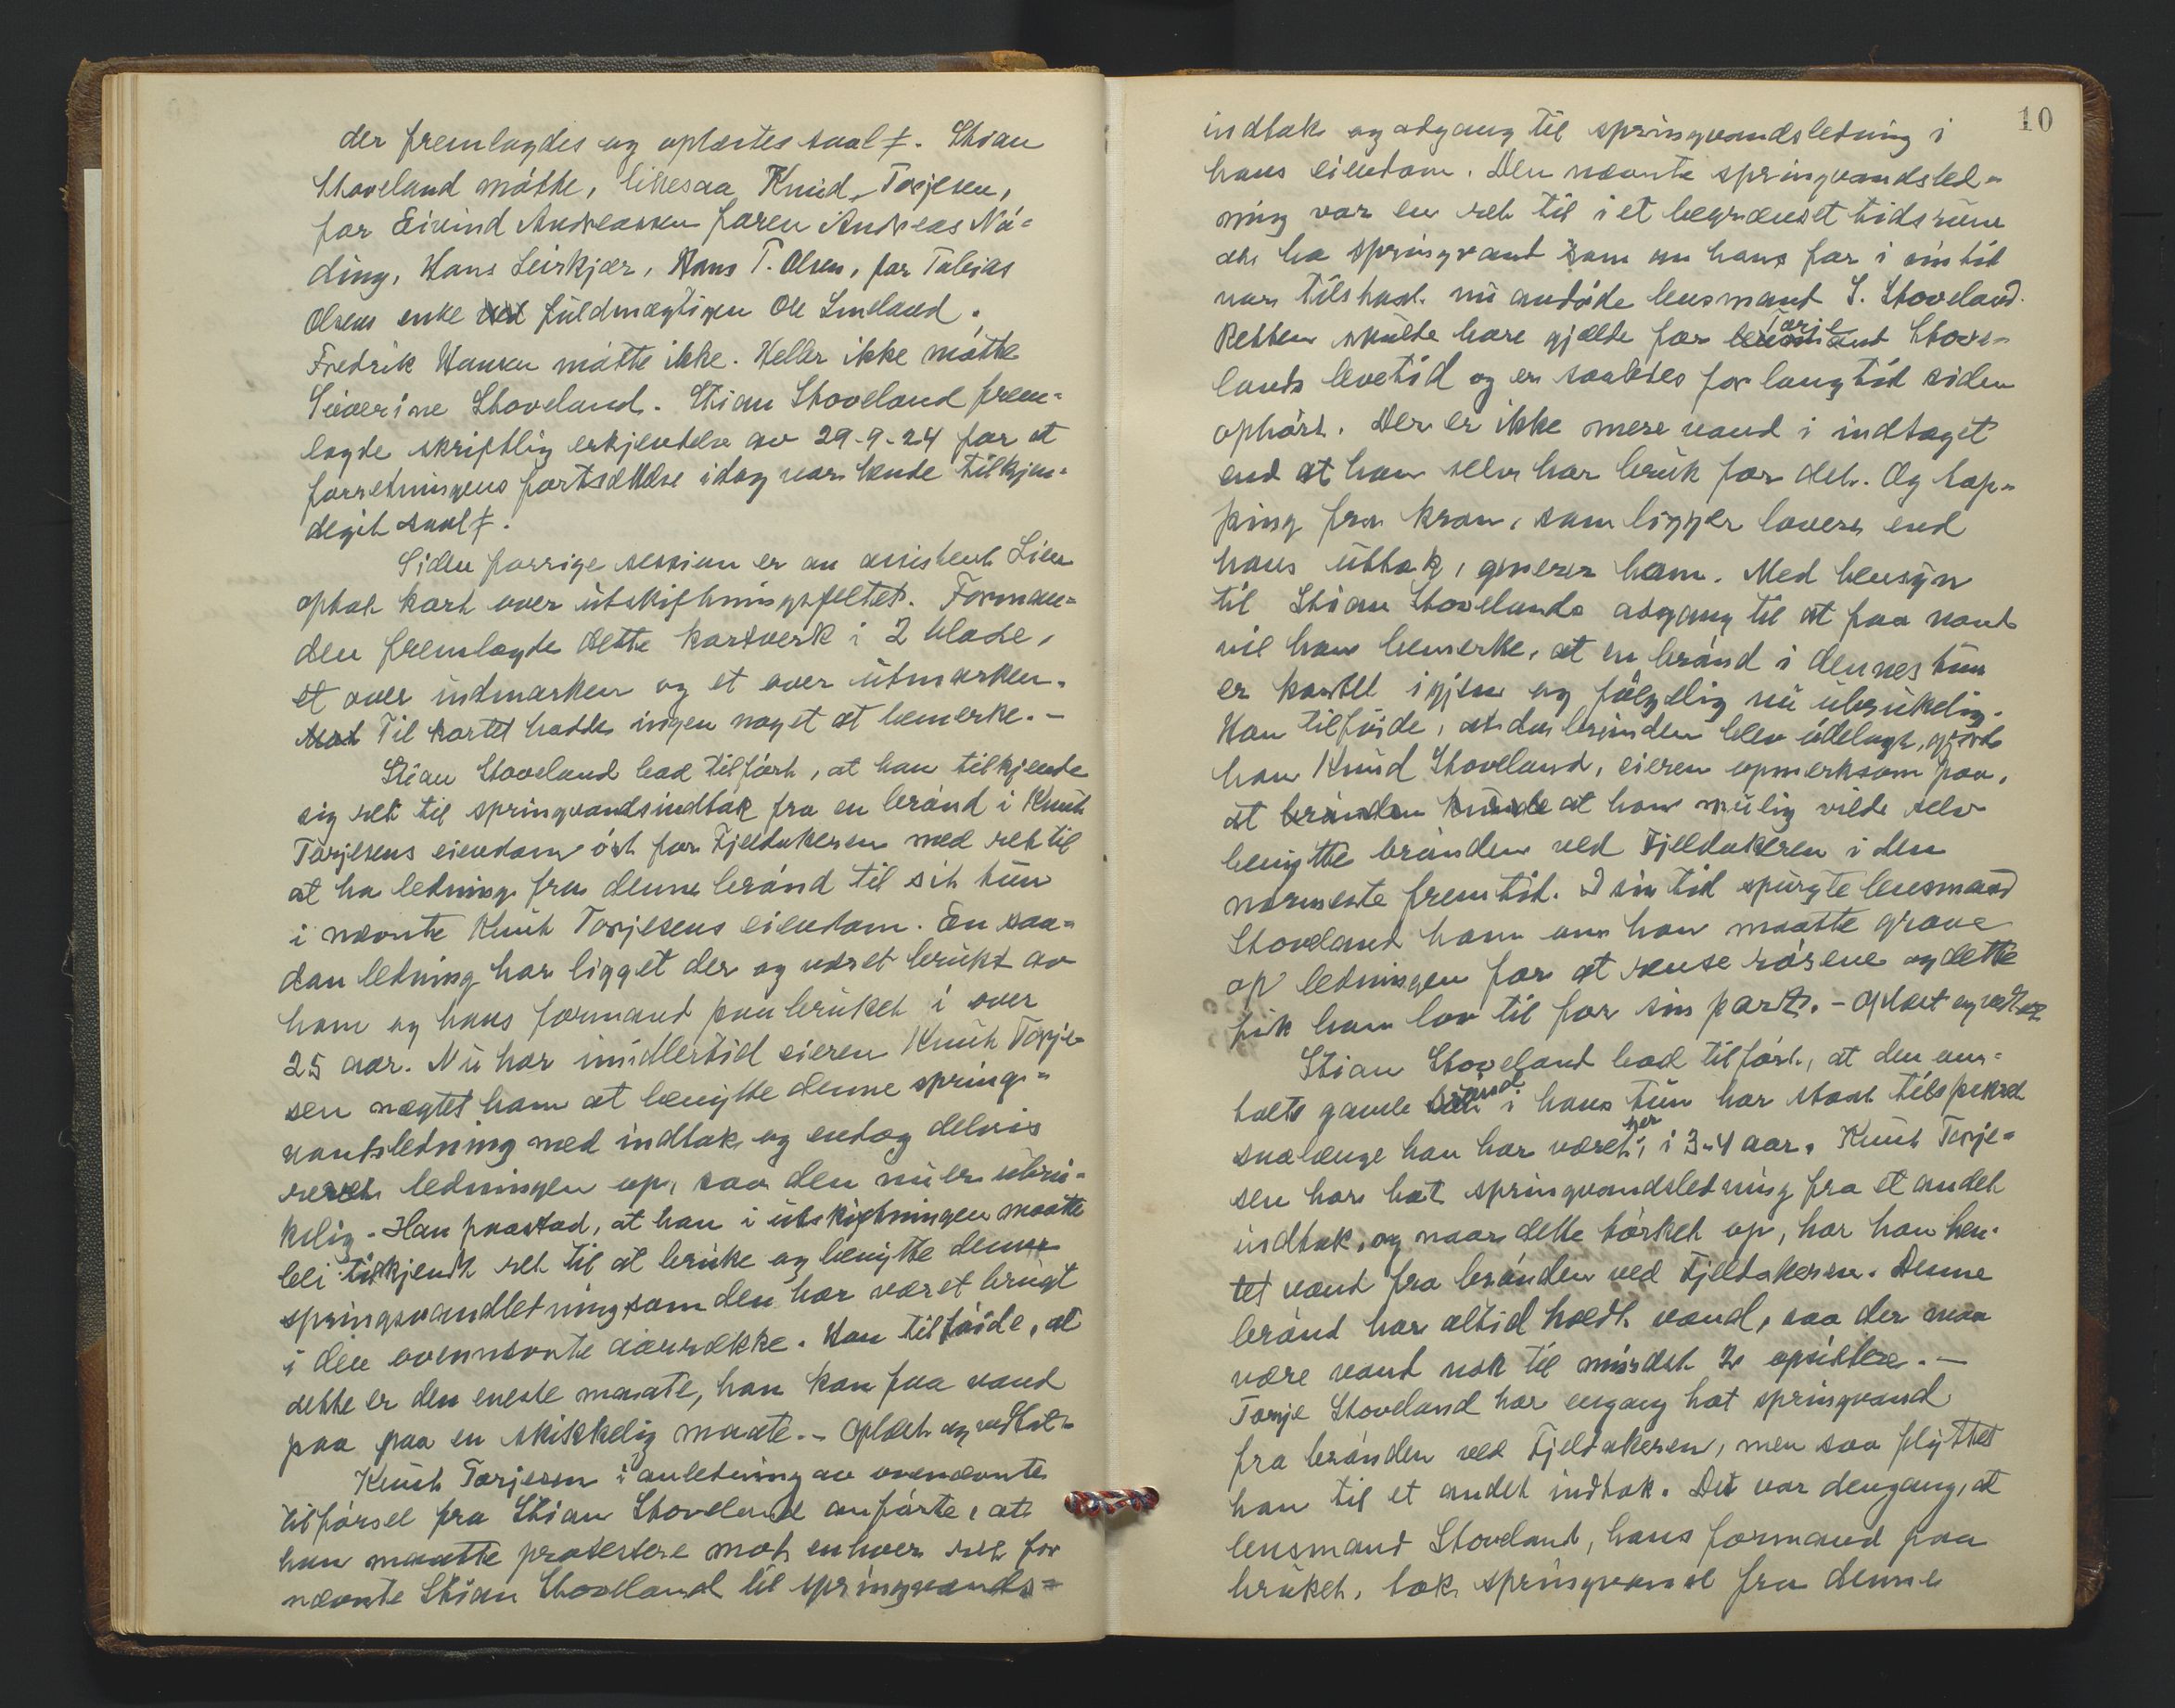 der fremlagdes og oplæstes saal ≠. Stian
Stoveland møtte, likesaa Knud Torjesen,
for Eivind Andreassen faren Andreas Nö-
ding, Hans Leirkjær, Hans T. Olsen, for Tobias
Olsens enke ved fuldmægtigen Ole Smeland.
Fredrik Hansen møtte ikke. Heller ikke møtte
Severine Stoveland. Stian Stoveland frem-
lagde skriftlig erkjendelse av 29-9-24 for at
forretningens fortsættelse idag var hende tilkjen-
degit saal ≠.
Siden forrige session er av assistent Lien
optat kart over utskiftningsfeltet. Forman-
den fremlagde dette kartverk i 2 blade,
et over indmarken og et over utmarken.
Til kartet hadde ingen noget at bemerke.-
Stian Stoveland bad tilført, at han tilkjendte
sig ret til springvandsindtak fra en brønd i Knut
Torjesens eiendom øst for Fjeldakeren med ret til
at ha ledning fra denne brønd til sit tun
i nævnte Knut Torjesens eiendom. En saa-
dan ledning har ligget der og været brukt av
ham og hans formand paa bruket i over
25 aar. Nu har imidlertid eieren Knut Torje-
sen nægtet ham at benytte denne spring-
vandsledning med indtak og endog delvis
revet ledningen op, saa den nu er ubru-
kelig. Han paastod, at han i utskiftningen maatte
bli tilkjendt ret til at bruke og benytte denne
springvandledning som den har været brugt
i den ovennævnte aarrække. Han tilføide, at
dette er den eneste maate, han kan faa vand
paa paa en skikkelig maate.- Oplæst og vedtat.
Knut Torjesen i anledning av ovennævnte
tilførsel fra Stian Stoveland anførte, at
han maatte protestere mot enhver ret for
nævnte Stian Stoveland til springvands-
10
indtak og adgang til springvandsledning i
hans eiendom. Den nævnte springvandsled-
ning var en ret til i et begrænset tidsrum
at ha springvand som an hans far i sin tid
var tilstaat nu avdøde lensmand S. Stoveland.
Retten skulde bare gjælde for Torje Stove-
lands levetid og er saaledes for lang tid siden
ophørt. Der er ikke mere vand i indtaget
end at han selv har bruk for det. Og tap-
ping fra kran, som ligger lavere end
hans uttak, generer ham. Med hensyn
til Stian Stovelands adgang til at faa vand
vil han bemerke, at en brønd i dennes tun
er kastet igjen og følgelig nu ubrukelig.
Han tilføide, at da brønden blev ødelagt, gjorde
han Knud Stoveland, eieren opmerksom paa,
at brønden kunde at han mulig vilde selv
benytte brønden ved Fjeldakeren i den
nærmeste fremtid. I sin tid spurgte lensmand
Stoveland ham om han maatte grave
op ledningen for at rense rørene og dette
fik han lov til for sin part.- Oplæst og vedtat
Stian Stoveland bad tilført, at den om-
talte gamle brønd i hans tun har staat tilspikret
saalænge han har været her, i 3-4 aar. Knut Torje-
sen har hat springvandsledning fra et andet
indtak, og naar dette tørket op, har han hen-
tet vand fra brønden ved Fjeldakeren. Denne
brønd har altid holdt vand, saa der maa
være vand nok til mindst 2 opsittere.-
Torje Stoveland har engang hat springvand
fra brønden ved Fjeldakeren, men saa flyttet
han til et andet indtak. Det var dengang, at
lensmand Stoveland, hans formand paa
bruket, tok springvand fra denne